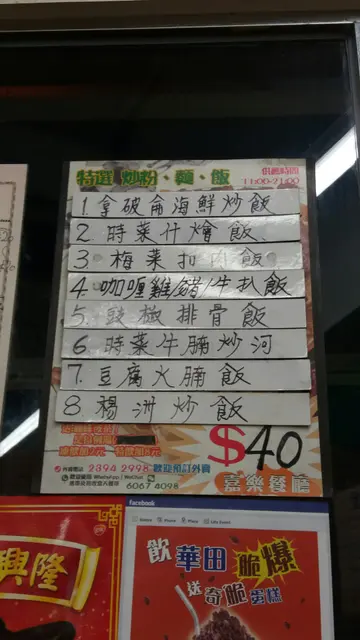 特選 炒粉、麵、飯
供應時間
11:00-21:00
1. 拿破侖海鮮炒飯
2 時菜什燴飯
3 梅菜扣肉飯
4. 咖喱雞/豬/牛扒飯
5. 豉椒排骨飯
6. 時菜牛腩炒河
7. 豆腐火腩飯
8. 楊洲炒飯
$40
外賣電話 2394 2998 歡迎預訂外賣
6067 4098
嘉樂餐廳
興隆
facebook
飲華田
脆爆
送奇脆蛋糕